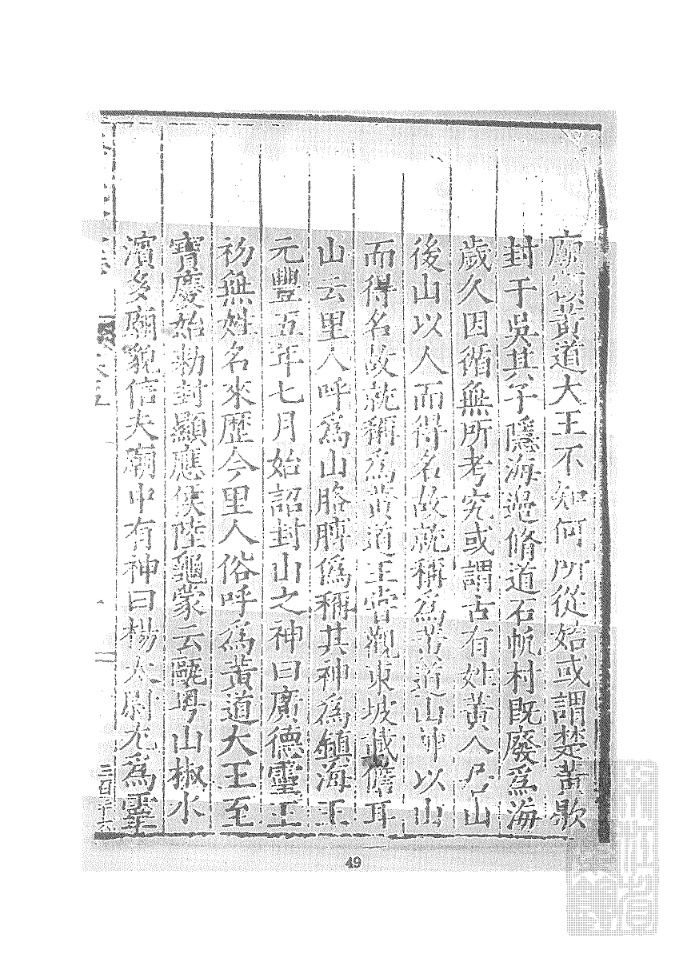 廟號黃道大王不知何所從始或謂楚黃歇
封于吳其子隱海邊脩道石帆村既廢爲海
歲久因循無所考究或謂古有姓黃人居山
後山以人而得名故就稱爲黃道山神以山
而得名故就稱爲黃道王嘗觀東坡載儋耳
山云里人呼爲山胳膊爲稱其神爲鎮海王
元豐五年七月始詔封山之神曰廣德靈王
初無姓名來歷今里人俗呼爲黃道大王至
寶慶始勅封顯應侯陸龜蒙云甌粤山椒水
濱多廟貌信夫廟中有神曰楊太尉尤爲靈
三百三十六
49